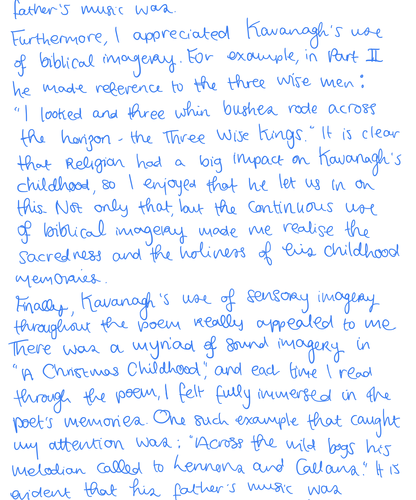 father's music was.
Furthermore, I appreciated Kavanagh's use
of biblical imagery. For example, in Part II
he made reference to the three wise men:
"I looked and three whin bushes rode across
the horizon - the Three Wise Kings." It is clear
that Religion had a big impact on Kavanagh's
childhood, so I enjoyed that he let us in on
this. Not only that, but the continuous use
of biblical imagery made me realise the
sacredness and the holiness of his childhood
memories.
Finally, Kavanagh's use of sensory imagery
throughout the poem really appealed to me
There was a myriad of sound imagery in
"A Christmas Childhood", and each time I read
through the poem, I felt fully immersed in the
poet's memories. One such example that caught
my attention was: "Across the wild bogs his
melodian called to Lennons and Callans." It is
evident that his father's music was